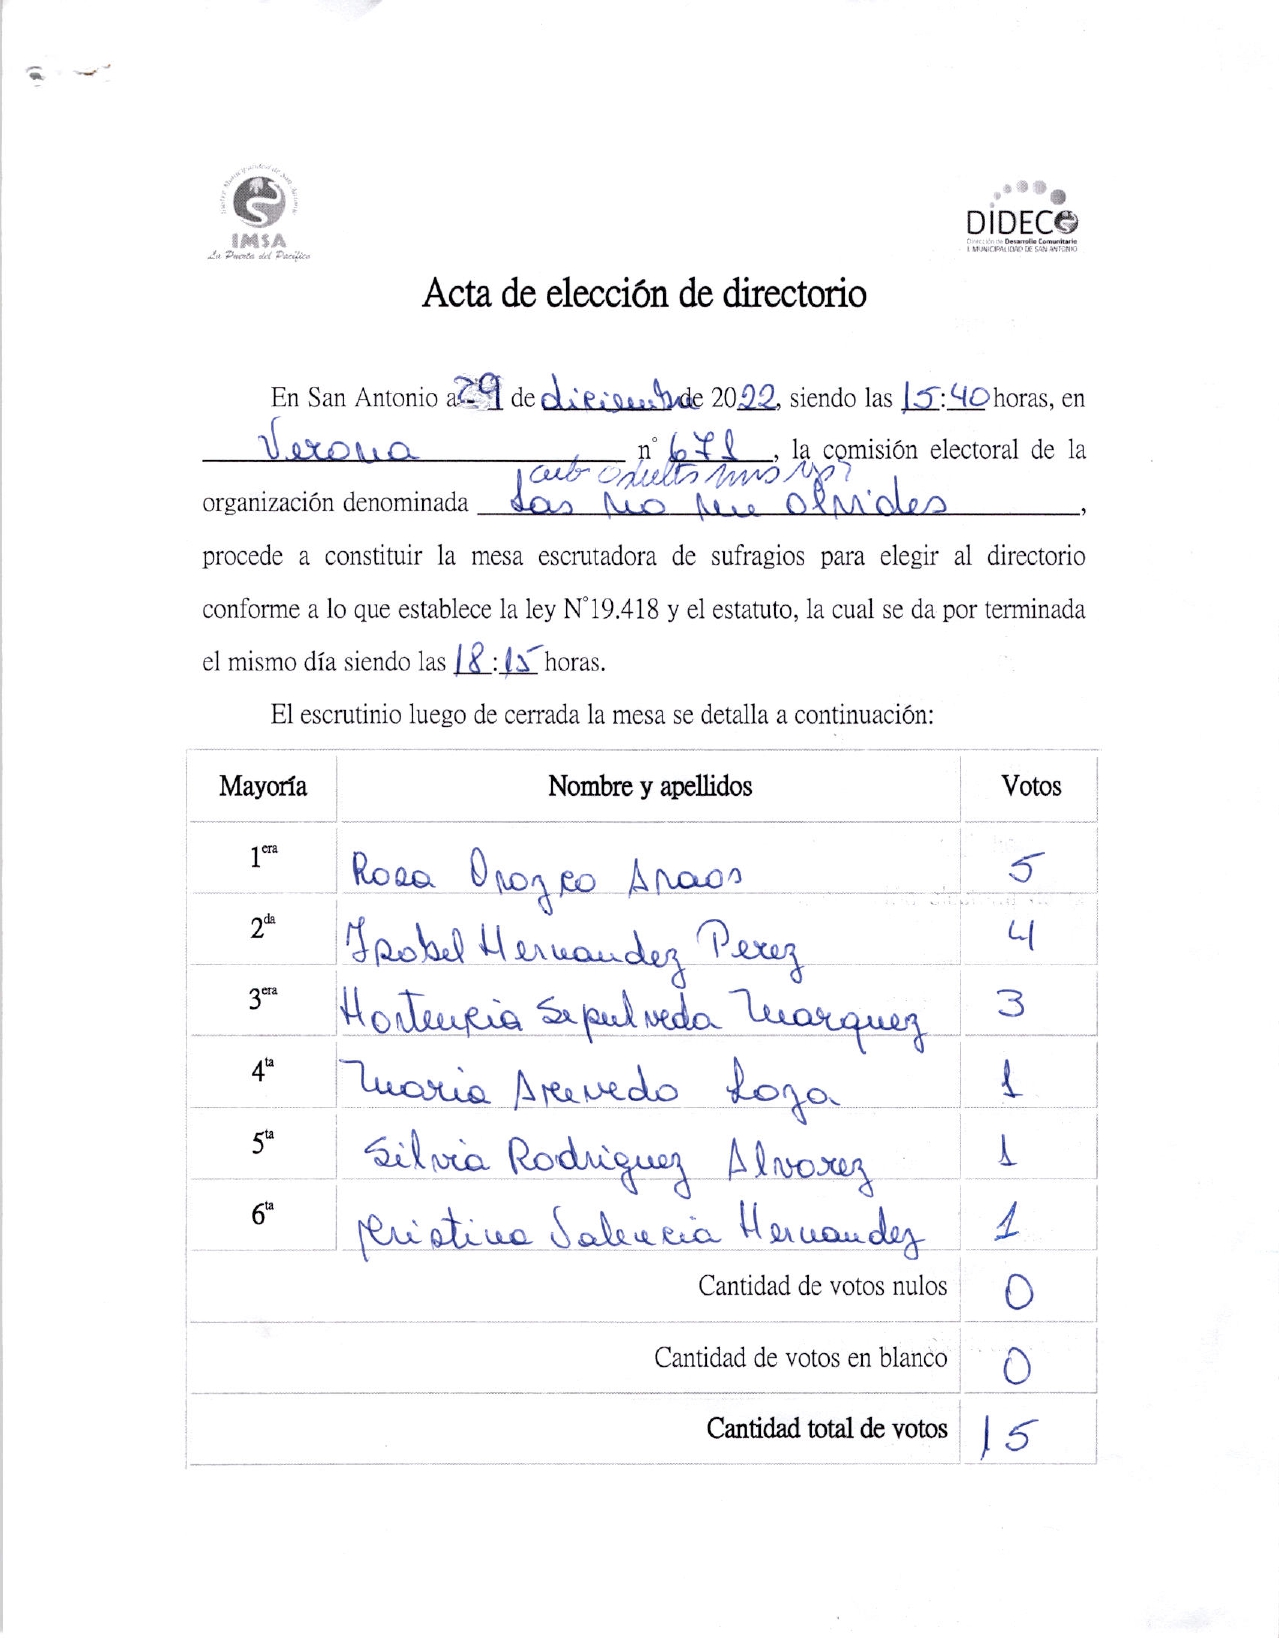 Ilustre Municipalidad de San Antonio
IMSA
La Puerta del Pacífico
DIDECO
Dirección de Desarrollo Comunitario
I. MUNICIPALIDAD DE SAN ANTONIO
Acta de elección de directorio
En San Antonio a 29 de diciembre de 2022, siendo las 15:40 horas, en
Verona n° 671, la comisión electoral de la
club adulto
organización denominada Las No me olvides,
procede a constituir la mesa escrutadora de sufragios para elegir al directorio
conforme a lo que establece la ley N°19.418 y el estatuto, la cual se da por terminada
el mismo día siendo las 18:15 horas.
El escrutinio luego de cerrada la mesa se detalla a continuación:
Mayoría Nombre y apellidos Votos
1era Rosa Orozco Araos 5
2da Isabel Hernandez Perez 4
3era Hortencia Sepulveda Marquez 3
4ta Maria Acevedo Loza 1
5ta Silvia Rodriguez Alvarez 1
6ta Cristina Valencia Hernandez 1
Cantidad de votos nulos 0
Cantidad de votos en blanco 0
Cantidad total de votos 15